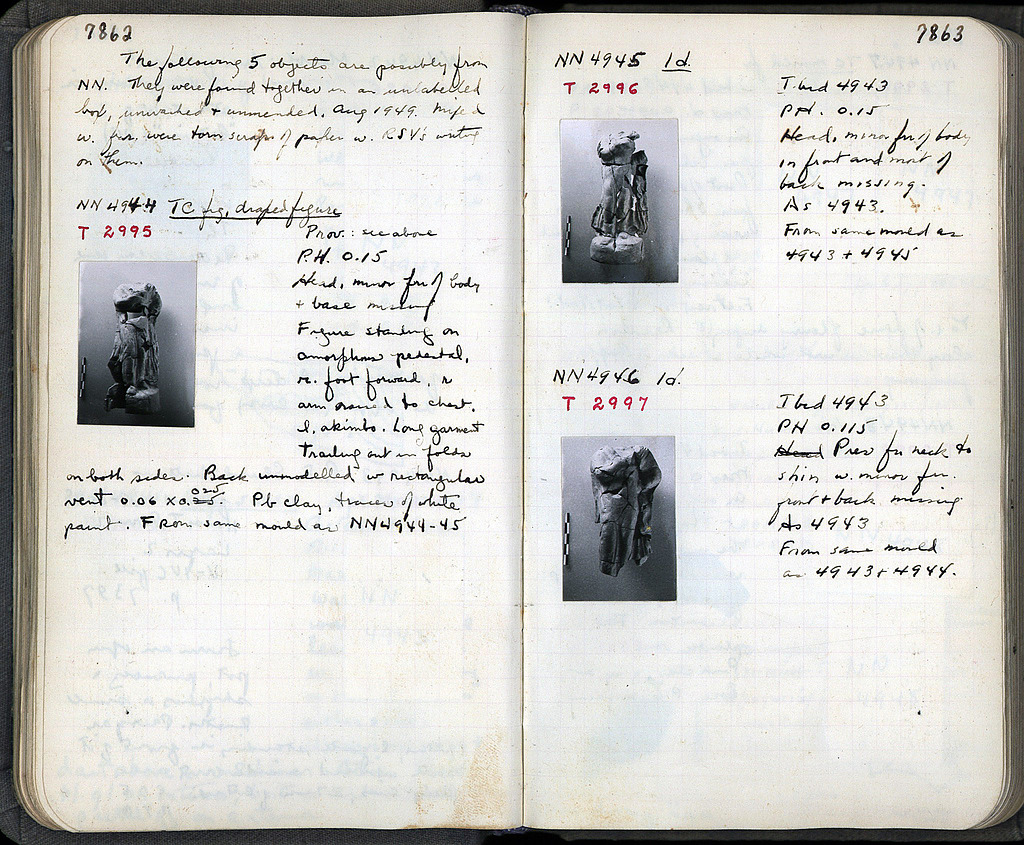 7862
The following 5 objects are possibly from
NN. They were found together in an unlabelled
box, unwashed + unmended, Aug 1949. Mixed
w. frr. were torn scraps of paper w. RSY's writing
on them.
NN 4944 TC fig, draped figure
T 2995
Prov.: see above
P.H. 0.15
Head, minor frr of body
+ base missing
Figure standing on
amorphous pedestal,
r. foot forward, r
arm raised to chest,
l, akimbo. Long garment
trailing out in folds
on both sides. Back unmodelled w rectangular
vent 0.06 x 0.025. Pb clay, traces of white
paint. From same mould as NN4944-45
7863
NN 4945 Id.
T 2996
Ibid 4943
PH. 0.15
Head, minor frr of body
in front and most of
back missing.
As 4943.
From same mould as
4943 + 4945
NN4946 Id.
T 2997
Ibid 4943
PH 0.115
Head Pres fr neck to
shin w. minor frr.
front + back missing
As 4943
From same mould
as 4943 + 4944.